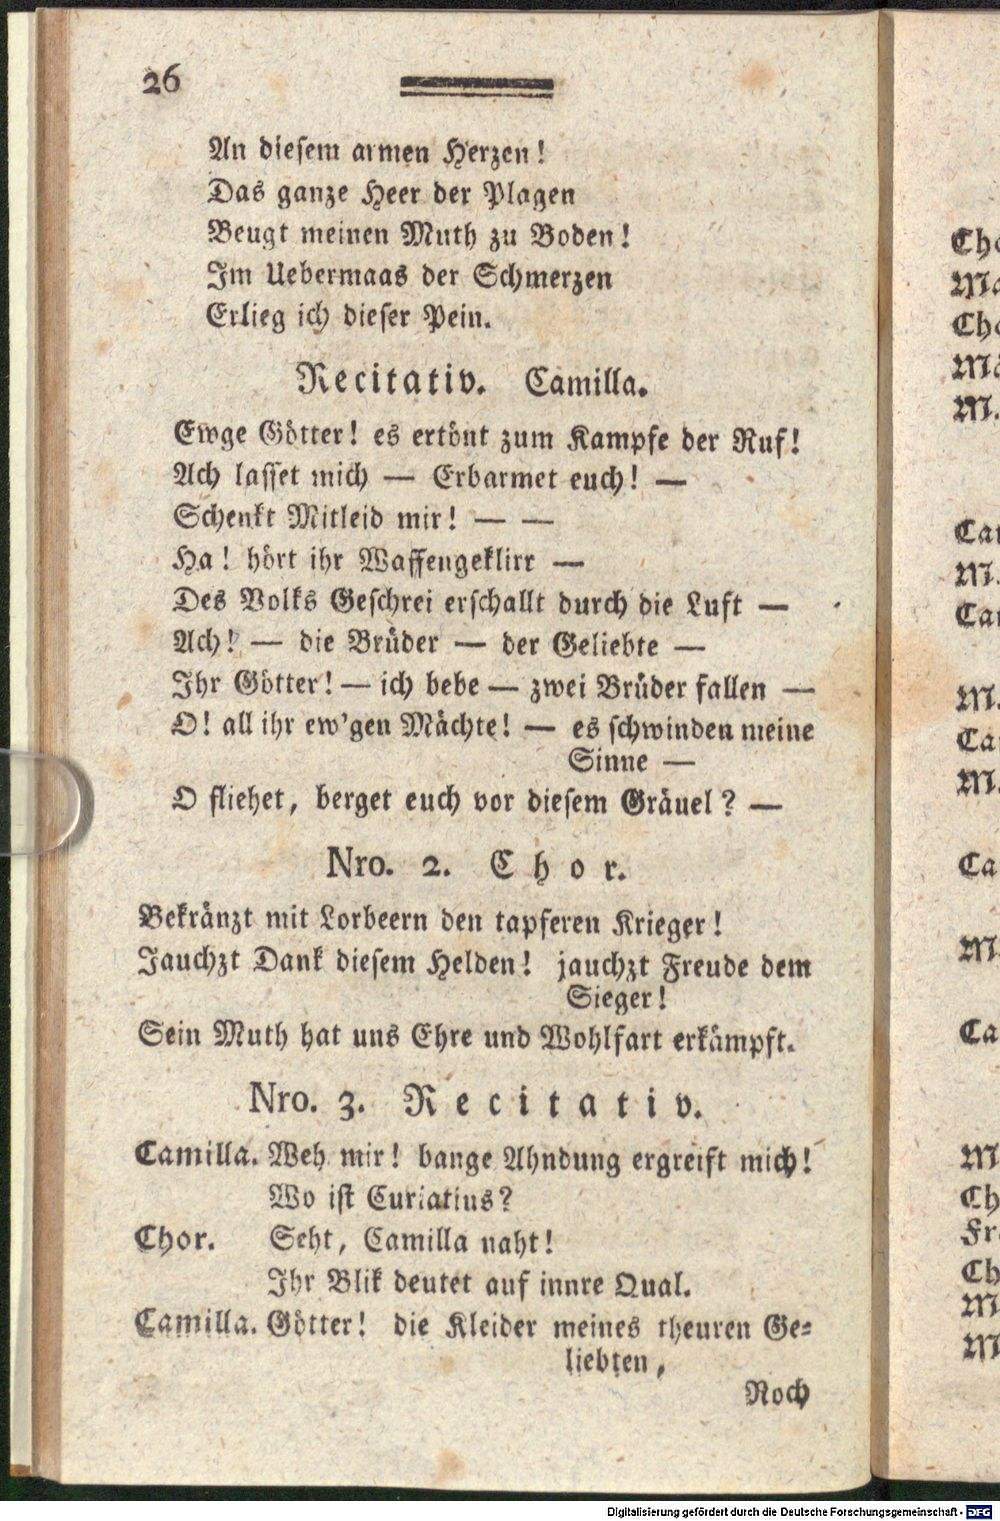 26
An diesem armen Herzen!
Das ganze Heer der Plagen
Beugt meinen Muth zu Boden!
Im Uebermaas der Schmerzen
Erlieg ich dieser Pein.
Recitativ. Camilla.
Ewge Götter! es ertönt zum Kampfe der Ruf!
Ach lasset mich — Erbarmet euch! —
Schenkt Mitleid mir! — —
Ha! hört ihr Waffengeklirr —
Des Volks Geschrei erschallt durch die Luft —
Ach! — die Brüder — der Geliebte —
Ihr Götter! — ich bebe — zwei Brüder fallen —
O! all ihr ew'gen Mächte! — es schwinden meine
Sinne —
O fliehet, berget euch vor diesem Gräuel? —
Nro. 2. Chor.
Bekränzt mit Lorbeern den tapferen Krieger!
Jauchzt Dank diesem Helden! jauchzt Freude dem
Sieger!
Sein Muth hat uns Ehre und Wohlfart erkämpft.
Nro. 3. Recitativ.
Camilla. Weh mir! bange Ahndung ergreift mich!
Wo ist Curiatius?
Chor. Seht, Camilla naht!
Ihr Blik deutet auf innre Qual.
Camilla. Götter! die Kleider meines theuren Ge-
liebten,
Noch
Cho
Ma
Cho
Ma
M.
Cam
M.
Cam
M.
Ca
M.
Ca
M.
Ca
M
Ch
Fr
Ch
M
M
Digitalisierung gefördert durch die Deutsche Forschungsgemeinschaft - DFG